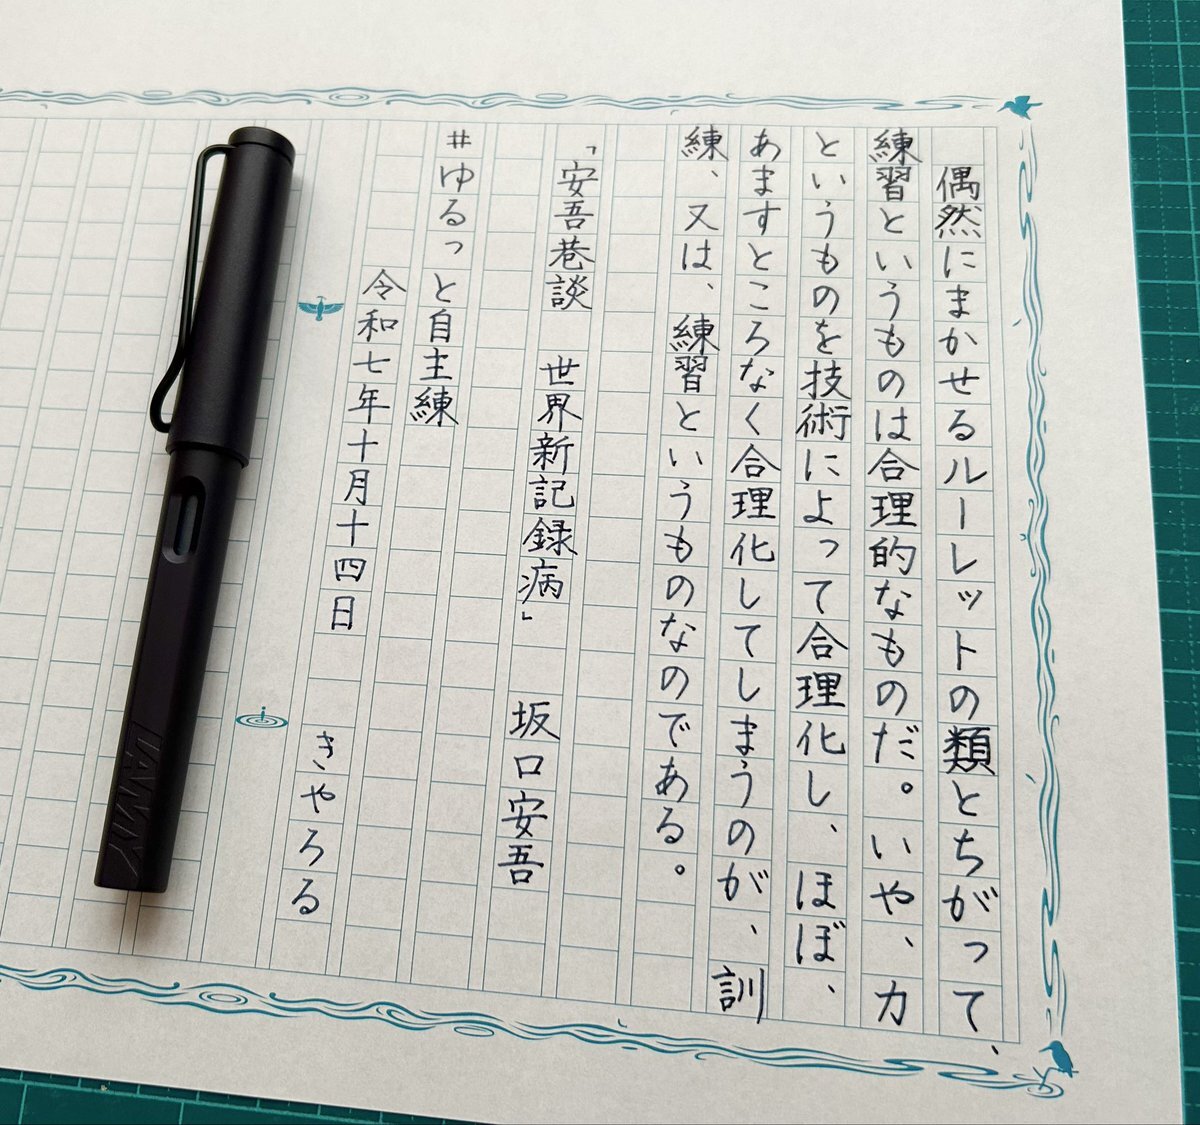 偶然にまかせるルーレットの類とちがって、
練習というものは合理的なものだ。いや、カ
というものを技術によって合理化し、ほぼ、
あますところなく合理化してしまうのが、訓
練、又は、練習というものなのである。
「安吾巷談　世界新記録病」　坂口安吾
#ゆるっと自主練
令和七年十月十四日　きやろる
LAMY